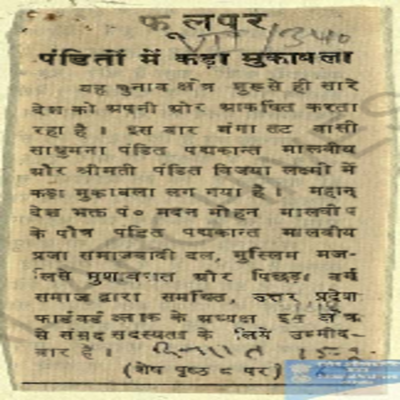 फूलपुर
VII/340
पंडितों में कड़ा मुकाबला
यह चुनाव क्षेत्र शुरू से ही सारे
देश को अपनी ओर आकर्षित करता
रहा है । इस बार गंगा तट वासी
साधुमना पंडित पद्मकान्त मालवीय
और श्रीमती पंडित विजया लक्ष्मी में
कड़ा मुकाबला लग गया है । महान्
देश भक्त पं० मदन मोहन मालवीय
के पौत्र पंडित पद्मकान्त मालवीय
प्रजा समाजवादी दल, मुस्लिम मज-
लिसे मुशावरात और पिछड़ा वर्ग
समाज द्वारा समर्थित, उत्तर प्रदेश
फार्डवर्ड ब्लाक के अध्यक्ष इस क्षेत्र
से संसद सदस्यता के लिये उम्मीद-
वार हैं ।
(शेष पृष्ठ ८ पर)